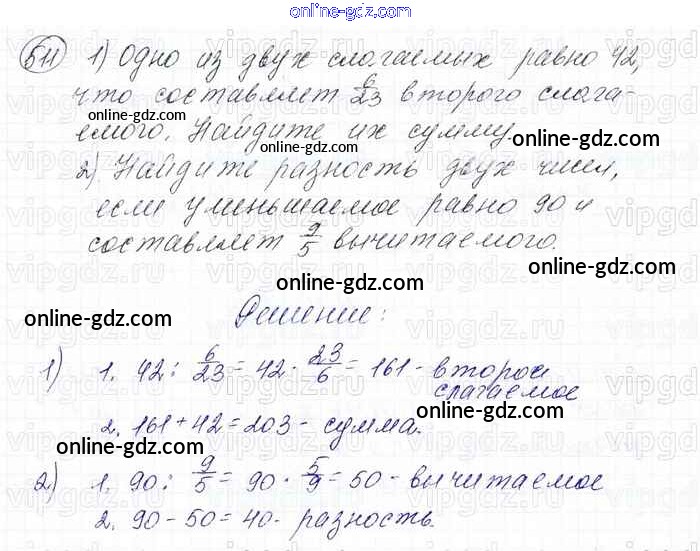 online-gdz.com
511 1) Одно из двух слагаемых равно 42,
что составляет 6/23 второго слага-
емого. Найдите их сумму.
2) Найдите разность двух чисел,
если уменьшаемое равно 90 и
составляет 9/5 вычитаемого.
Решение:
1) 1. 42 : 6/23 = 42 · 23/6 = 161 - второе
слагаемое
2. 161 + 42 = 203 - сумма.
2) 1. 90 : 9/5 = 90 · 5/9 = 50 - вычитаемое
2. 90 - 50 = 40 - разность.
online-gdz.com
online-gdz.com
online-gdz.com
online-gdz.com
online-gdz.com
online-gdz.com
online-gdz.com
online-gdz.com